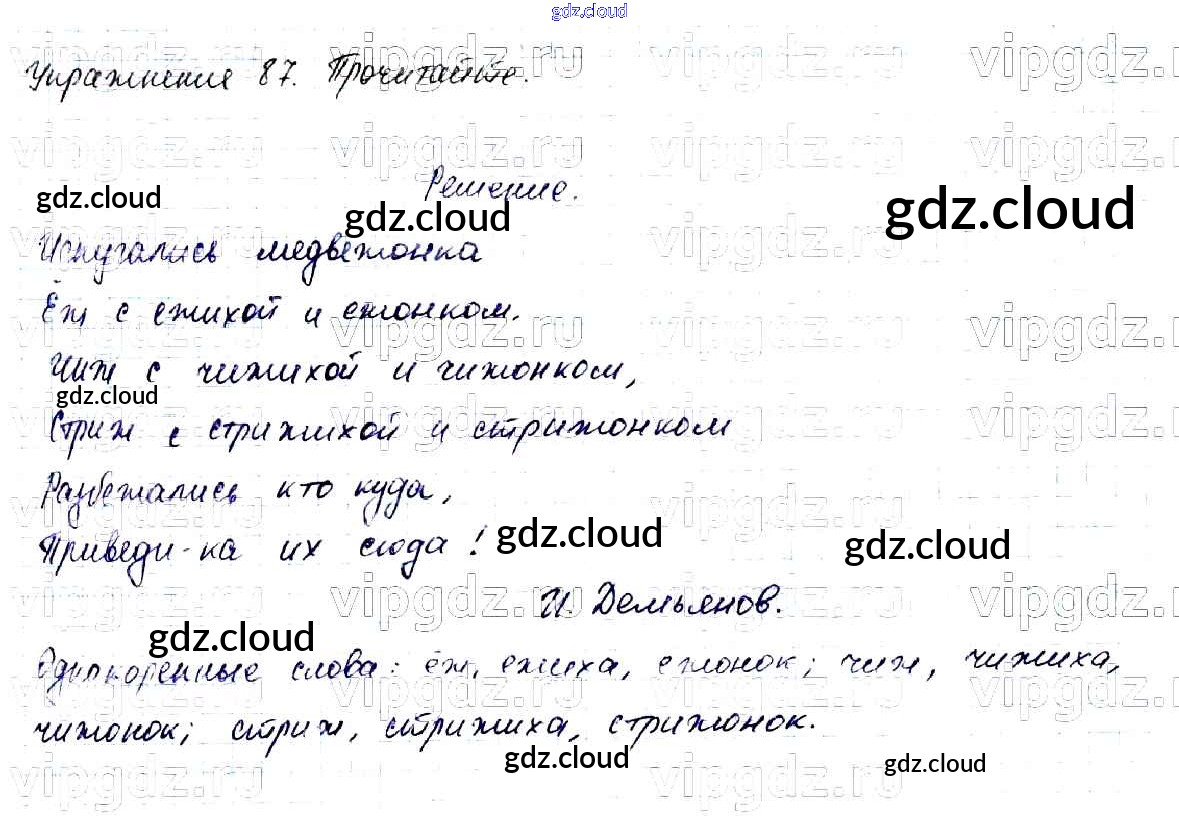 gdz.cloud
Упражнение 87. Прочитайте.
Решение.
gdz.cloud
gdz.cloud
gdz.cloud
Испугались медвежонка
Ёж с ежихой и ежонком.
Чиж с чижихой и чижонком,
gdz.cloud
Стриж с стрижихой и стрижонком
Разбежались кто куда,
Приведи-ка их сюда!
gdz.cloud
gdz.cloud
И. Демьянов.
gdz.cloud
Однокоренные слова: ёж, ежиха, ежонок; чиж, чижиха,
чижонок; стриж, стрижиха, стрижонок.
gdz.cloud
gdz.cloud
vipgdz.ru